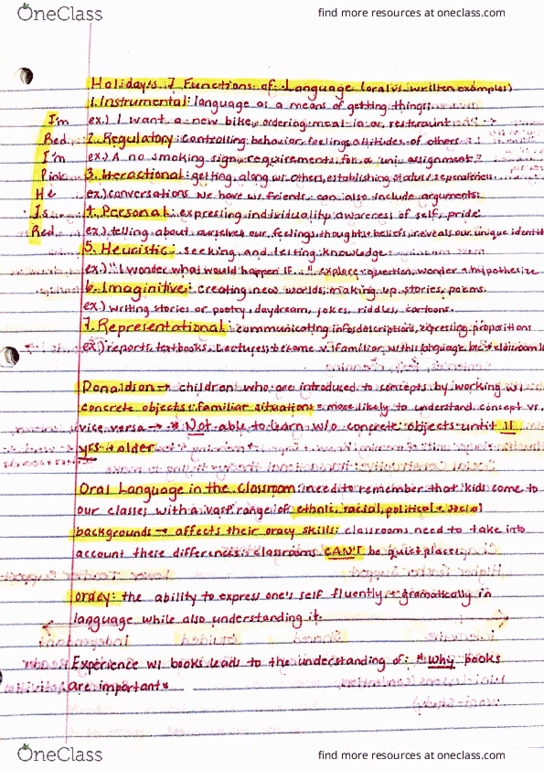 OneClass
find more resources at oneclass.com
Holiday's 7 Functions of Language (oral vs. written examples)
1. Instrumental: language as a means of getting things:
I'm ex.) I want a new bike, ordering meal in a restaraunt
Red 2. Regulatory: controlling behavior, feelings attitudes of others
I'm ex.) A no smoking sign, requirements for a uni assignment
Pink 3. Iteractional: getting along w/ others, establishing status, seperation
He ex.) conversations we have w/ friends, can also include arguments
Is 4. Personal: expressing individuality, awareness of self, pride
Red ex.) telling about ourselves our, feelings, thoughts, beliefs, reveals our unique identit
5. Heuristic: seeking and testing knowledge
ex.) "I wonder what would happen if..." explore, question, wonder hypothesize
6. Imaginitive: creating new worlds, making up stories, poems
ex.) writing stories or poetry, daydream, jokes, riddles, cartoons.
7. Representational: communicating info, descriptions, expressing propositions
ex.) reports, textbooks, Lectures, become v. familiar w/ this language classroom
Donaldson → children who are introduced to concepts by working w/
concrete objects familiar situations = more likely to understand concept vs.
vice versa → * Not able to learn w/o concrete objects until 11
yrs + older
Oral Language in the Classroom: need to remember that kids come to
our classes with a vast range of ethnic, racial, political + social
backgrounds → affects their oracy skills: classrooms need to take into
account these differences: classrooms CAN'T be quiet places
oracy: the ability to express one's self fluently + gramatically in
language while also understanding it.
Experience w/ books leads to the understanding of: * Why books
are important *
OneClass
find more resources at oneclass.com